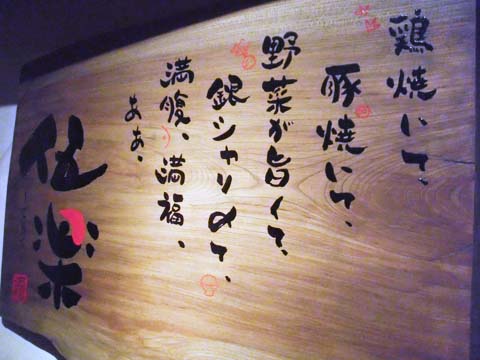 鶏焼いて、
豚焼いて、
野菜が旨くて、
銀シャリのて、
満腹、満福、
ああ、
伍楽